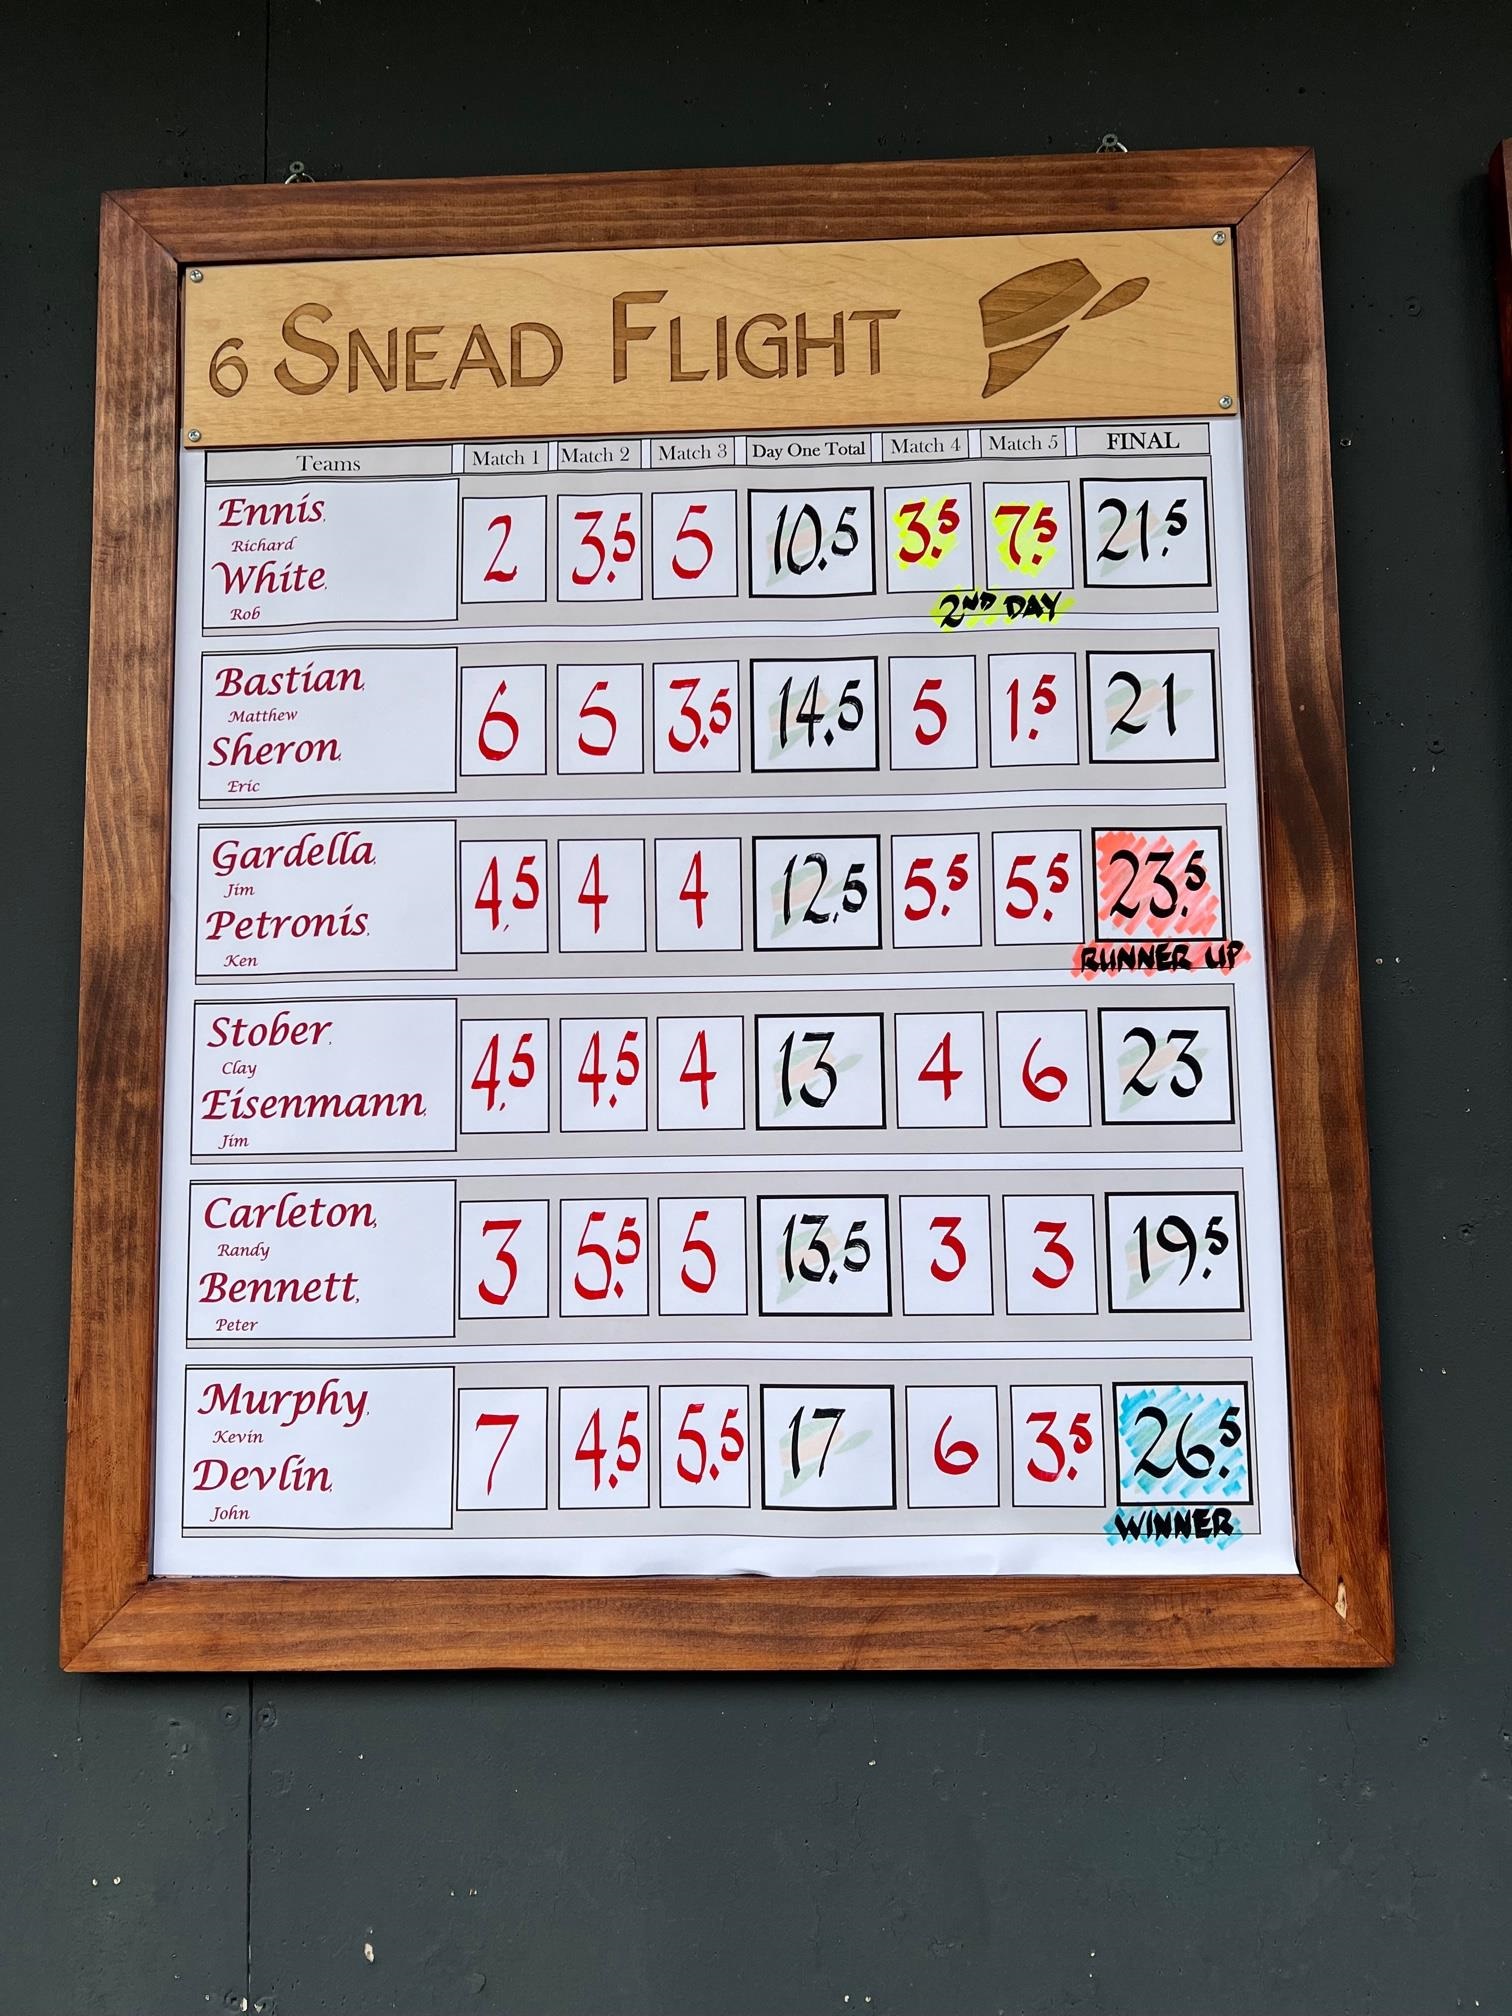 6 SNEAD FLIGHT
Teams Match 1 Match 2 Match 3 Day One Total Match 4 Match 5 FINAL
Ennis,
Richard
White,
Rob
2 3.5 5 10.5 3.5 7.5 21.5
2ND DAY
Bastian,
Matthew
Sheron,
Eric
6 5 3.5 14.5 5 1.5 21
Gardella,
Jim
Petronis,
Ken
4.5 4 4 12.5 5.5 5.5 23.5
RUNNER UP
Stober,
Clay
Eisenmann,
Jim
4.5 4.5 4 13 4 6 23
Carleton,
Randy
Bennett,
Peter
3 5.5 5 13.5 3 3 19.5
Murphy,
Kevin
Devlin,
John
7 4.5 5.5 17 6 3.5 26.5
WINNER